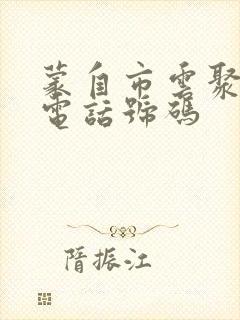 蒙自市雲聚
電話號碼
隋振江